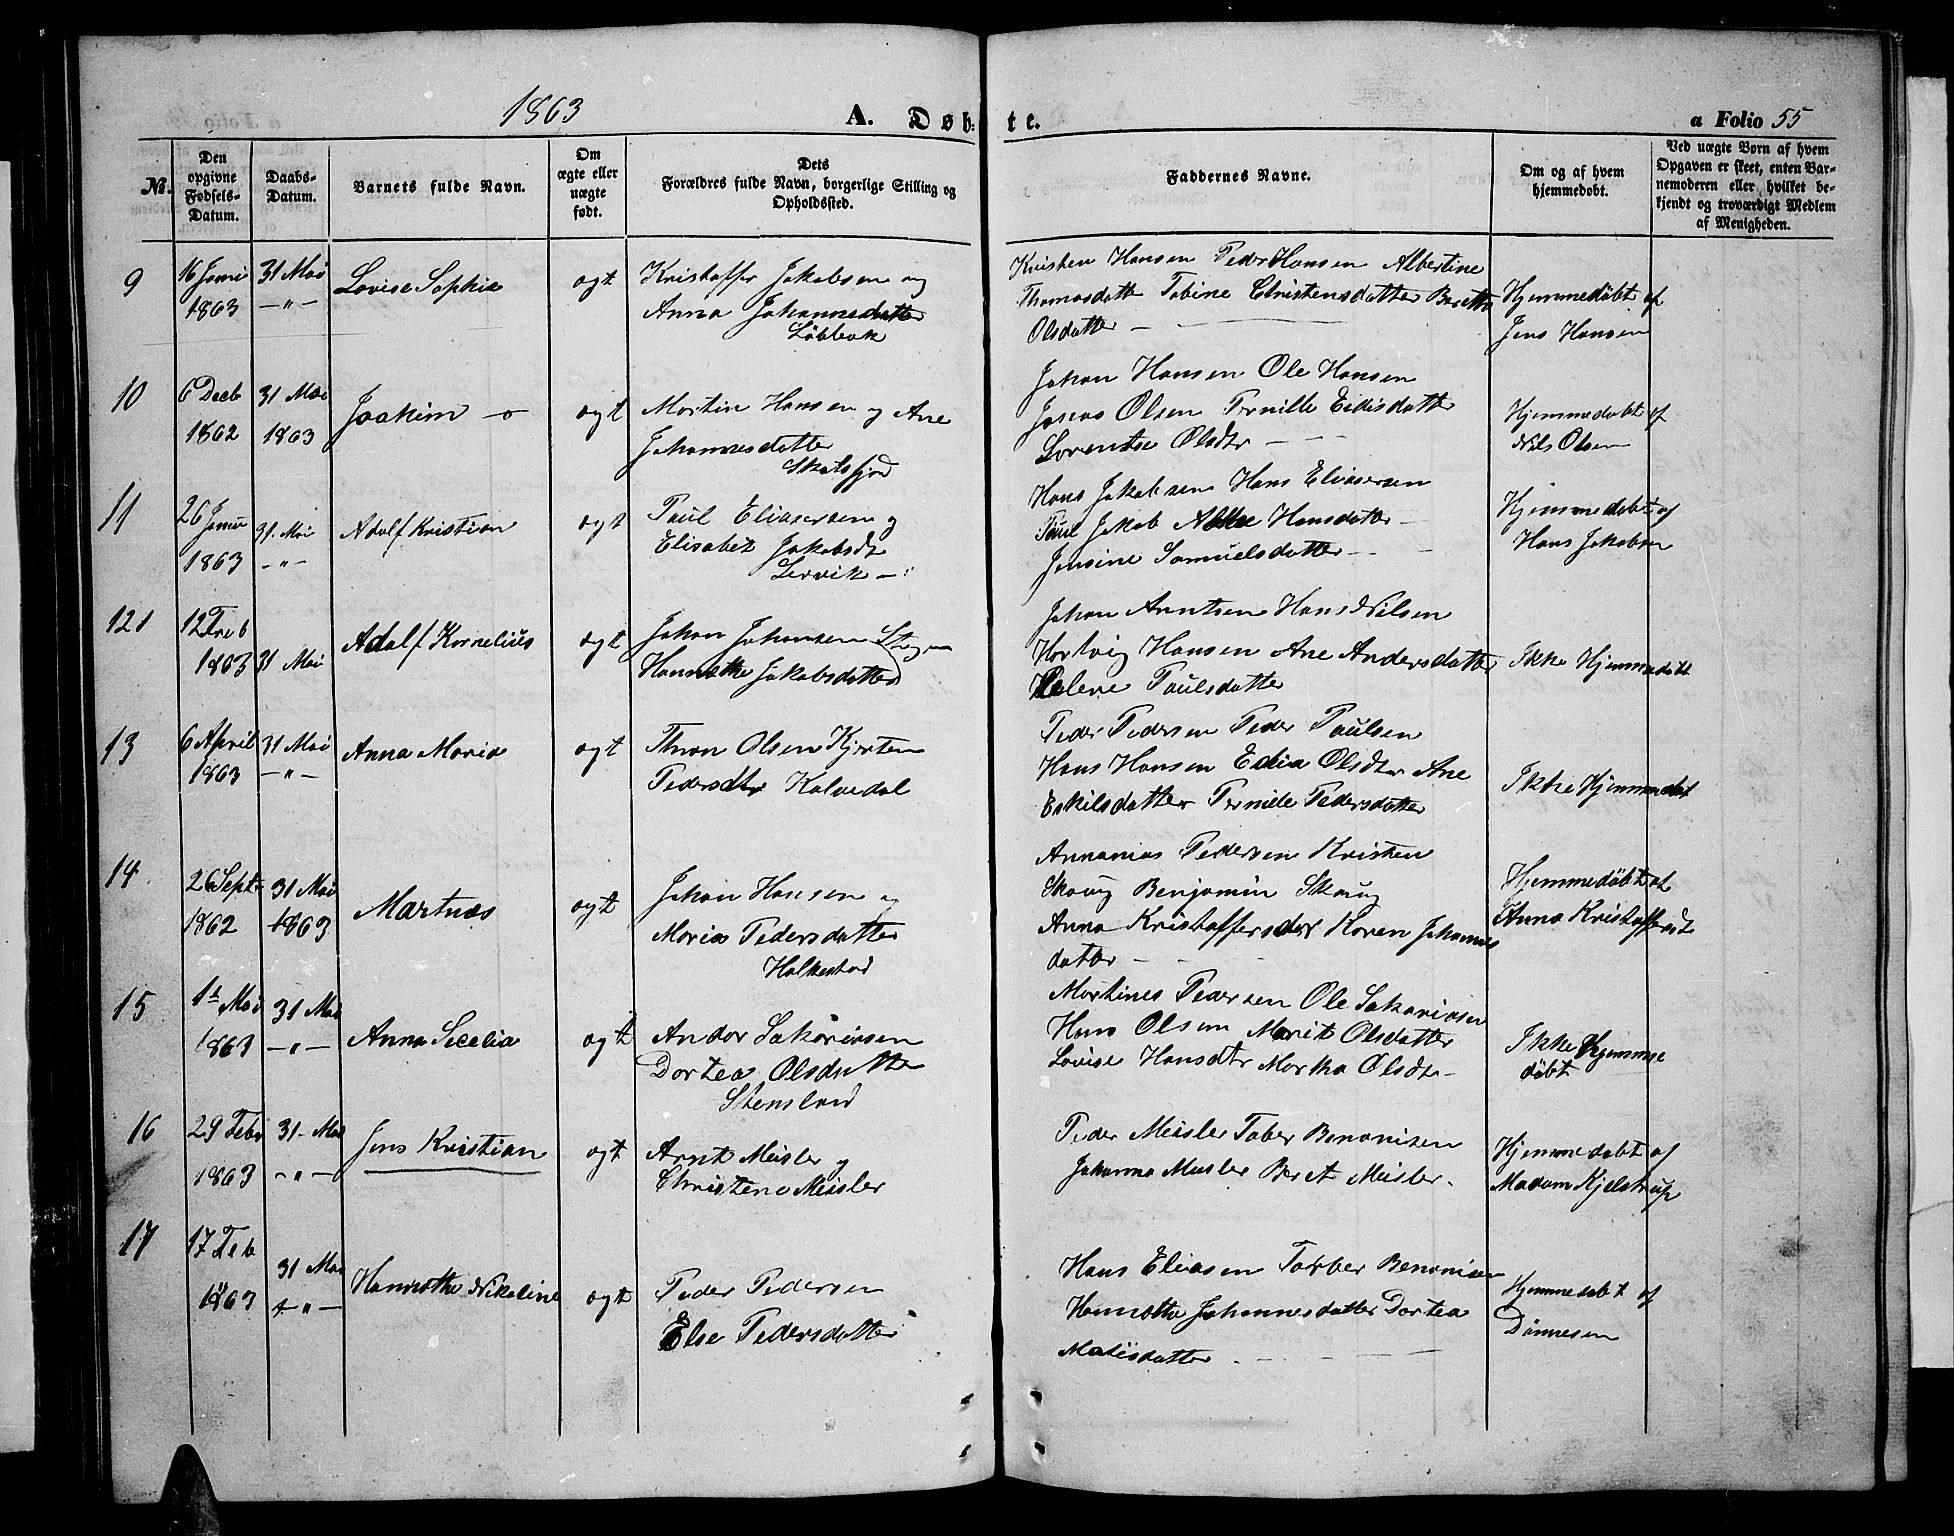 1863 A. Døb- te. a Folio 55
No.
Den opgivne Fødsels-Datum.
Daabs-Datum.
Barnets fulde Navn.
Om ægte eller uægte født.
Dets Forældres fulde Navn, borgerlige Stilling og Opholdssted.
Faddernes Navne.
Om og af hvem hjemmedøbt.
Ved uægte Børn af hvem Opgaven er skeet, enten Barnemoderen eller hvilket bekjendt og troværdigt Medlem af Menigheden.
9
1863
31 Mai
—"—
Lovise Sophie
ogt
Kristoffer Jakobsen og
Anna Johannesdatter
Kristen Hansen Peder Hansen Albertine
Thomasdatt Tobine Christensdatter Beritte
Olsdatter —
Hjemmedøbt af
Jens Hansen
10
6 Decb
1862
31 Mai
1863
Joakim
ogt
Martin Hansen og Ane
Johannesdatter
Johan Hansen Ole Hansen
Olsen Pernille Eidisdatter
Lorentse Olsdtr
Hjemmedøbt af
Nils Olsen
11
26 Janu
1863
31. Mai
—"—
Adolf Kristian
ogt
Paul Eliasersen og
Elisabet Jakobsdt
Lervik
Hans Jakobsen Hans Eliasersen
Paul Jakob Hansdatter
Jensine Samuelsdatter
Hjemmedøbt af
Hans Jakobsen
121
12 Feb
1863
31 Mai
Adolf Kornelius
ogt
Johan Johansen
Hannathe Jakobsdatter
Johan Arntsen Hans Nilsen
Hartvig Hansen Ane Andersdatter
Helene Paulsdatter
Ikke Hjemmedøbt
13
6 April
1863
31 Mai
—"—
Anna Maria
ogt
Olsen Kjersten
Pedersdtr Kalvedal
Peder Pedersen Peder Paulsen
Hans Hansen Olsdtr Ane
Eskilsdatter Pernille Pedersdatter
Ikke Hjemmedøbt
14
26 Sept
1862
31 Mai
1863
Martnæs
ogt
Johan Hansen og
Maria Pedersdatter
Halkestad
Annanias Pedersen Kristen
Skaug Benjamin Skaug
Anna Kristoffersdtr Karen Johannes
datter
Hjemmedøbt af
Anna Kristoffersdt
15
Mai
1863
31 Mai
—"—
Anna Secelia
ogt
Andor Sakariasen
Dortea Olsdatter
Stensland
Martines Pedersen Ole Sakariasen
Hans Olsen Marit Olsdatter
Lovise Hansdtr Martha Olsdtr
Ikke Hjemme
døbt
16
29 Febr
1863
31. Mai
—"—
Jens Kristian
ogt
Arnt Meisler og
Christene Meisler
Peder Meisler Tober Benonisen
Johanna Meisler Beret Meisler.
Hjemmedøbt af
Madam Kjelstrup
17
17 Feb
1863
31 Mai
—"—
Hannathe Nikoline
ogt
Peder Pedersen
Else Pedersdatter
Hans Eliasen Torber Benonisen
Hannathe Johannesdatter Dortea
Matisdatter
Hjemmedøbt af
Dønnesen